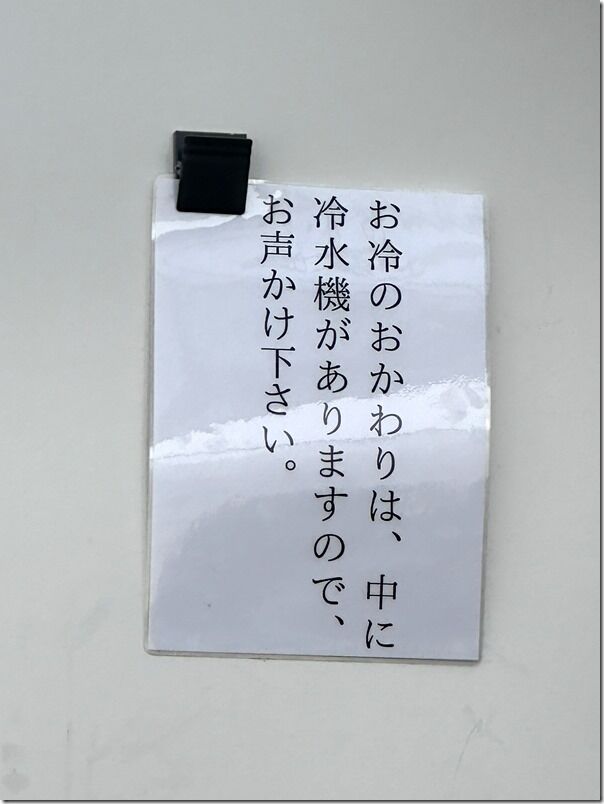 お冷のおかわりは、中に
冷水機がありますので、
お声かけ下さい。